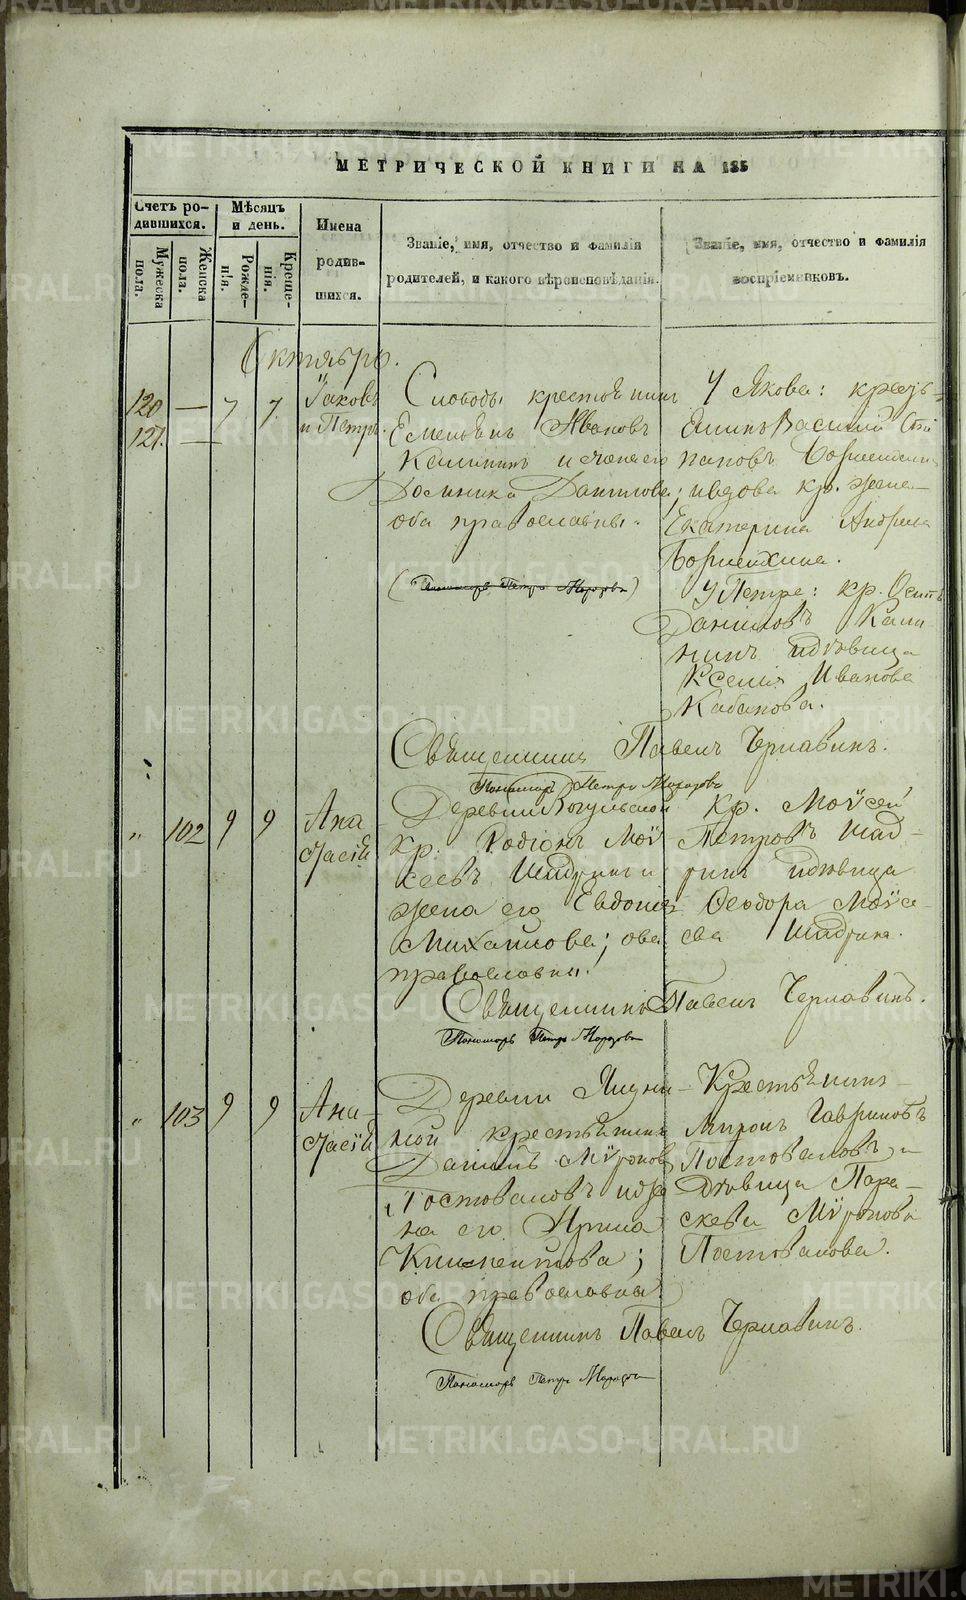 МЕТРИЧЕСКОЙ КНИГИ НА 185
Счетъ родившихся.
Мужеска пола.
Женска пола.
Мѣсяцъ и день.
Рожденія.
Крещенія.
Имена родившихся.
Званіе, имя, отчество и фамилія родителей, и какого вѣроисповѣданія.
Званіе, имя, отчество и фамилія воспріемниковъ.
Октябрь.
120 — 7 7
121. —
Іаковъ
и Петръ.
Слободы крестьянинъ
Емельянъ Ивановъ
Калининъ и жена его
Данилова;
оба православны.
(Пономарь Петръ Морозовъ)
У Якова: кресть-
янинъ Василій Сте
пановъ
и вдова кр. жена
Екатерина Андреева
У Петра: кр. Осипъ
Даниловъ Кали
нинъ и дѣвица
Ксенія Иванова
Кабакова.
Священникъ Павелъ Чернавинъ.
Пономарь Петръ Морозовъ
" 102 9 9
Ана
стасія
Деревни
Кр. Родіонъ Мої
сеевъ Шадринъ и
жена его Евдокія
Михайлова; оба
православны.
Кр. Моѵсей
Петровъ Шад-
ринъ и дѣвица
Ѳеодора Моѵсе-
ева Шадрина.
Священникъ Павелъ Чернавинъ.
Пономарь Петръ Морозовъ
" 103 9 9
Ана-
стасія
Деревни
ной крестьянинъ
Даніилъ Мѵроновъ
Постоваловъ и же
на его Ирина
Климентова;
оба православны.
Крестьянинъ
Миронъ Гавриловъ
Постоваловъ и
дѣвица Пара-
скева Мѵронова
Постовалова.
Священникъ Павелъ Чернавинъ.
Пономарь Петръ Морозовъ
METRIKI.GASO-URAL.RU